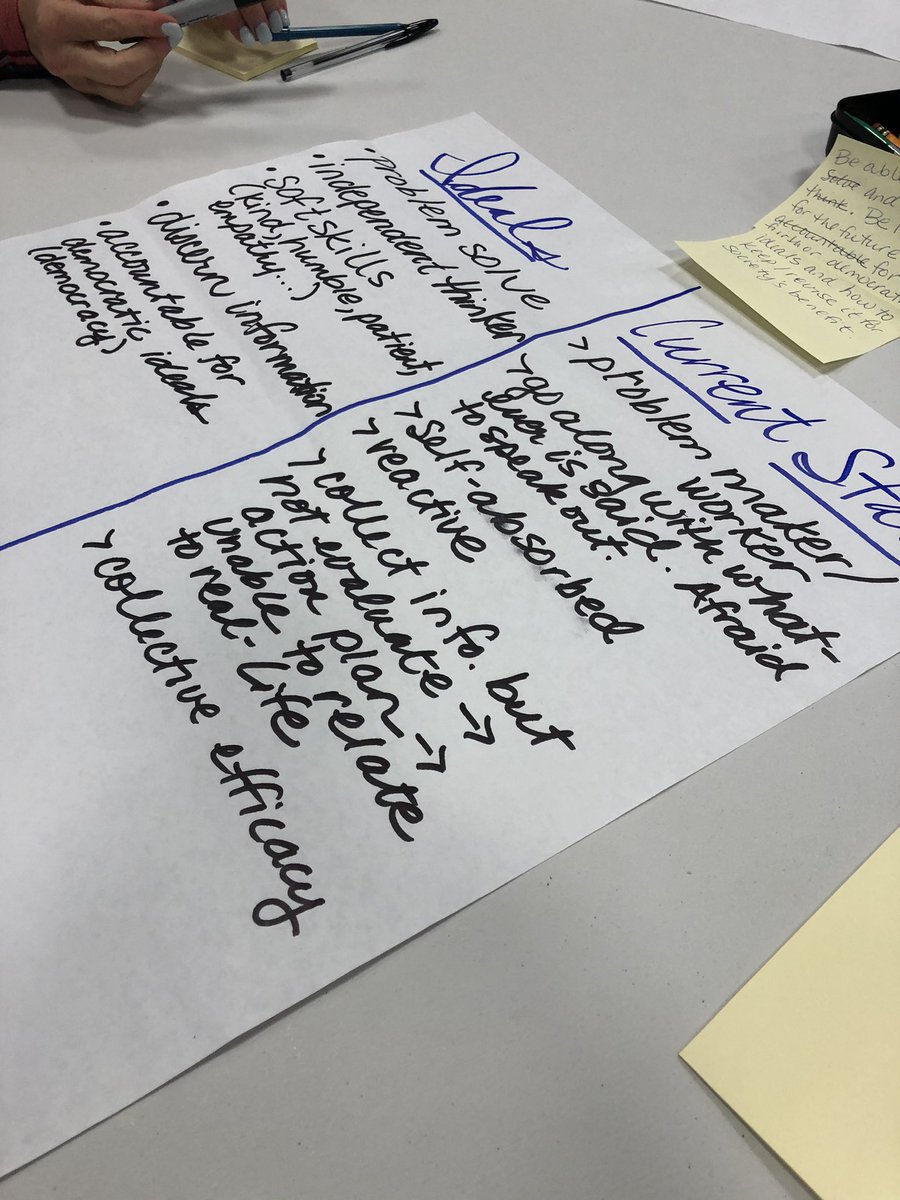 Ideals
• problem solve
• independent thinker
• soft skills
(kind, humble, patient,
empathy...)
• discern information
• accountable for
democratic ideals
(democracy)
Current Sta
> problem maker/
worker
> go along with what-
ever is said. Afraid
to speak out.
> self-absorbed
> reactive
> collect info. but
not evaluate →
action plan →
unable to relate
to real-life
> collective efficacy
Be abl
solve and
think. Be
for the future
accountable for
his/her democrati
ideals and how to
keep/revise it for
society's benefit.